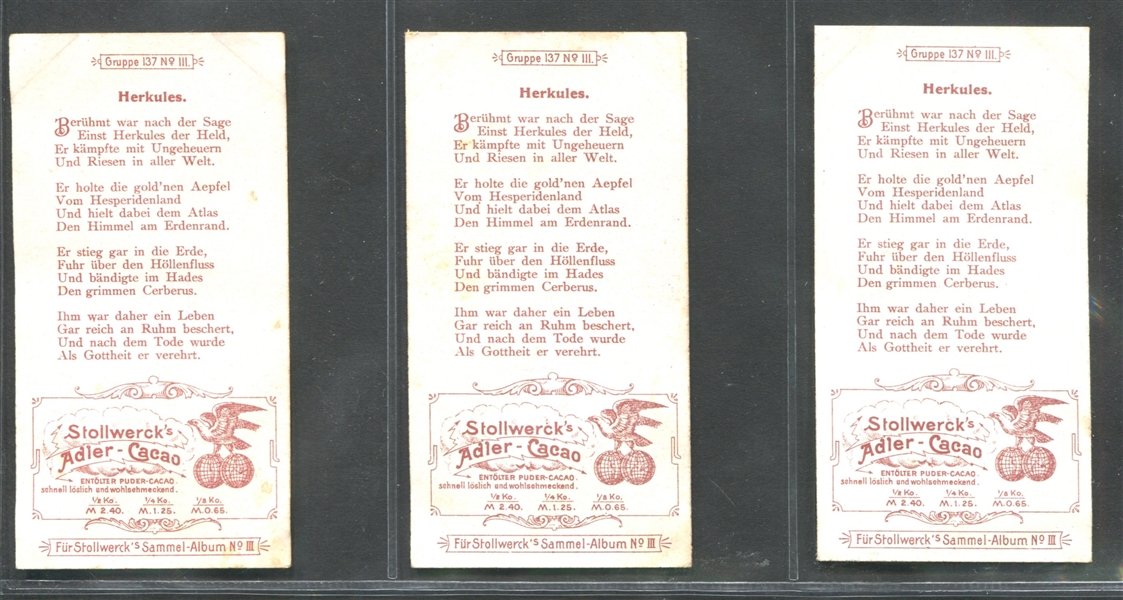 Gruppe 137 Nº III.
Herkules.
Berühmt war nach der Sage
Einst Herkules der Held,
Er kämpfte mit Ungeheuern
Und Riesen in aller Welt.
Er holte die gold'nen Aepfel
Vom Hesperidenland
Und hielt dabei dem Atlas
Den Himmel am Erdenrand.
Er stieg gar in die Erde,
Fuhr über den Höllenfluss
Und bändigte im Hades
Den grimmen Cerberus.
Ihm war daher ein Leben
Gar reich an Ruhm beschert,
Und nach dem Tode wurde
Als Gottheit er verehrt.
Stollwerck's
Adler-Cacao
ENTÖLTER PUDER-CACAO.
schnell löslich und wohlschmeckend.
½ Ko. ¼ Ko. ⅛ Ko.
M 2.40. M.1.25. M.0.65.
Für Stollwerck's Sammel-Album Nº III
Gruppe 137 Nº III.
Herkules.
Berühmt war nach der Sage
Einst Herkules der Held,
Er kämpfte mit Ungeheuern
Und Riesen in aller Welt.
Er holte die gold'nen Aepfel
Vom Hesperidenland
Und hielt dabei dem Atlas
Den Himmel am Erdenrand.
Er stieg gar in die Erde,
Fuhr über den Höllenfluss
Und bändigte im Hades
Den grimmen Cerberus.
Ihm war daher ein Leben
Gar reich an Ruhm beschert,
Und nach dem Tode wurde
Als Gottheit er verehrt.
Stollwerck's
Adler-Cacao
ENTÖLTER PUDER-CACAO.
schnell löslich und wohlschmeckend.
½ Ko. ¼ Ko. ⅛ Ko.
M 2.40. M.1.25. M.0.65.
Für Stollwerck's Sammel-Album Nº III
Gruppe 137 Nº III.
Herkules.
Berühmt war nach der Sage
Einst Herkules der Held,
Er kämpfte mit Ungeheuern
Und Riesen in aller Welt.
Er holte die gold'nen Aepfel
Vom Hesperidenland
Und hielt dabei dem Atlas
Den Himmel am Erdenrand.
Er stieg gar in die Erde,
Fuhr über den Höllenfluss
Und bändigte im Hades
Den grimmen Cerberus.
Ihm war daher ein Leben
Gar reich an Ruhm beschert,
Und nach dem Tode wurde
Als Gottheit er verehrt.
Stollwerck's
Adler-Cacao
ENTÖLTER PUDER-CACAO.
schnell löslich und wohlschmeckend.
½ Ko. ¼ Ko. ⅛ Ko.
M 2.40. M.1.25. M.0.65.
Für Stollwerck's Sammel-Album Nº III